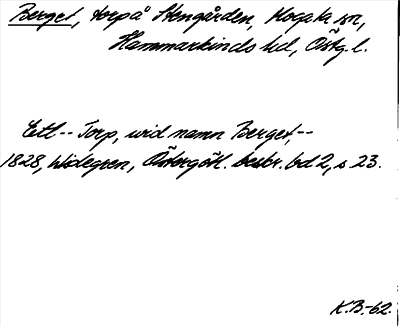 Berget, torp å Stengården, Mogata sn,
Hammarkinds hd, Östg. l.
Ett -- Torp, wid namn Berget, --
1828, Widegren, Östergötl. beskr. bd 2, s 23.
K.B.-62.